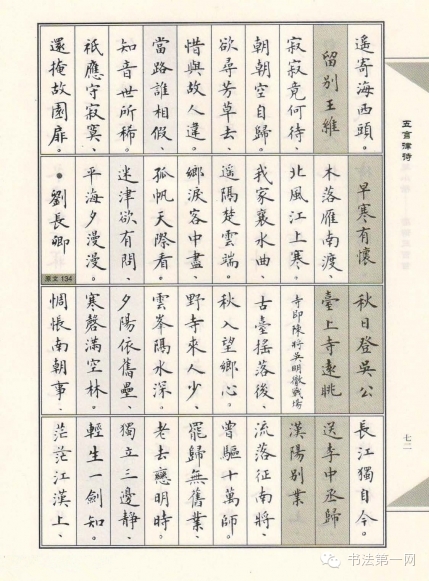 五言律詩
遙寄海西頭。
留別王維
寂寂竟何待、
朝朝空自歸。
欲尋芳草去、
惜與故人違。
當路誰相假、
知音世所稀。
祇應守寂寞、
還掩故園扉。
早寒有懷
木落雁南渡、
北風江上寒。
我家襄水曲、
遙隔楚雲端。
鄉淚客中盡、
孤帆天際看。
迷津欲有問、
平海夕漫漫。
•劉長卿
原文 134
秋日登吳公
臺上寺遠眺
寺即陳將吳明徹戰場
古臺搖落後、
秋入望鄉心。
野寺來人少、
雲峯隔水深。
夕陽依舊壘、
寒磬滿空林。
惆悵南朝事、
長江獨自今。
送李中丞歸
漢陽別業
流落征南將、
曾驅十萬師。
罷歸無舊業、
老去戀明時。
獨立三邊靜、
輕生一劍知。
茫茫江漢上、
七二
书法第一网